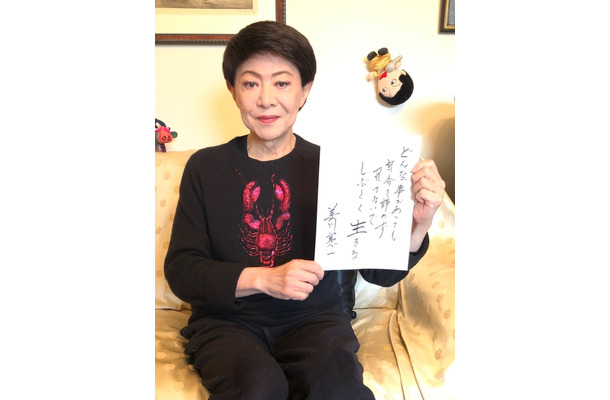 どんな事があっても
自分を諦めず
負けないで
しぶとく生きる
美川憲一